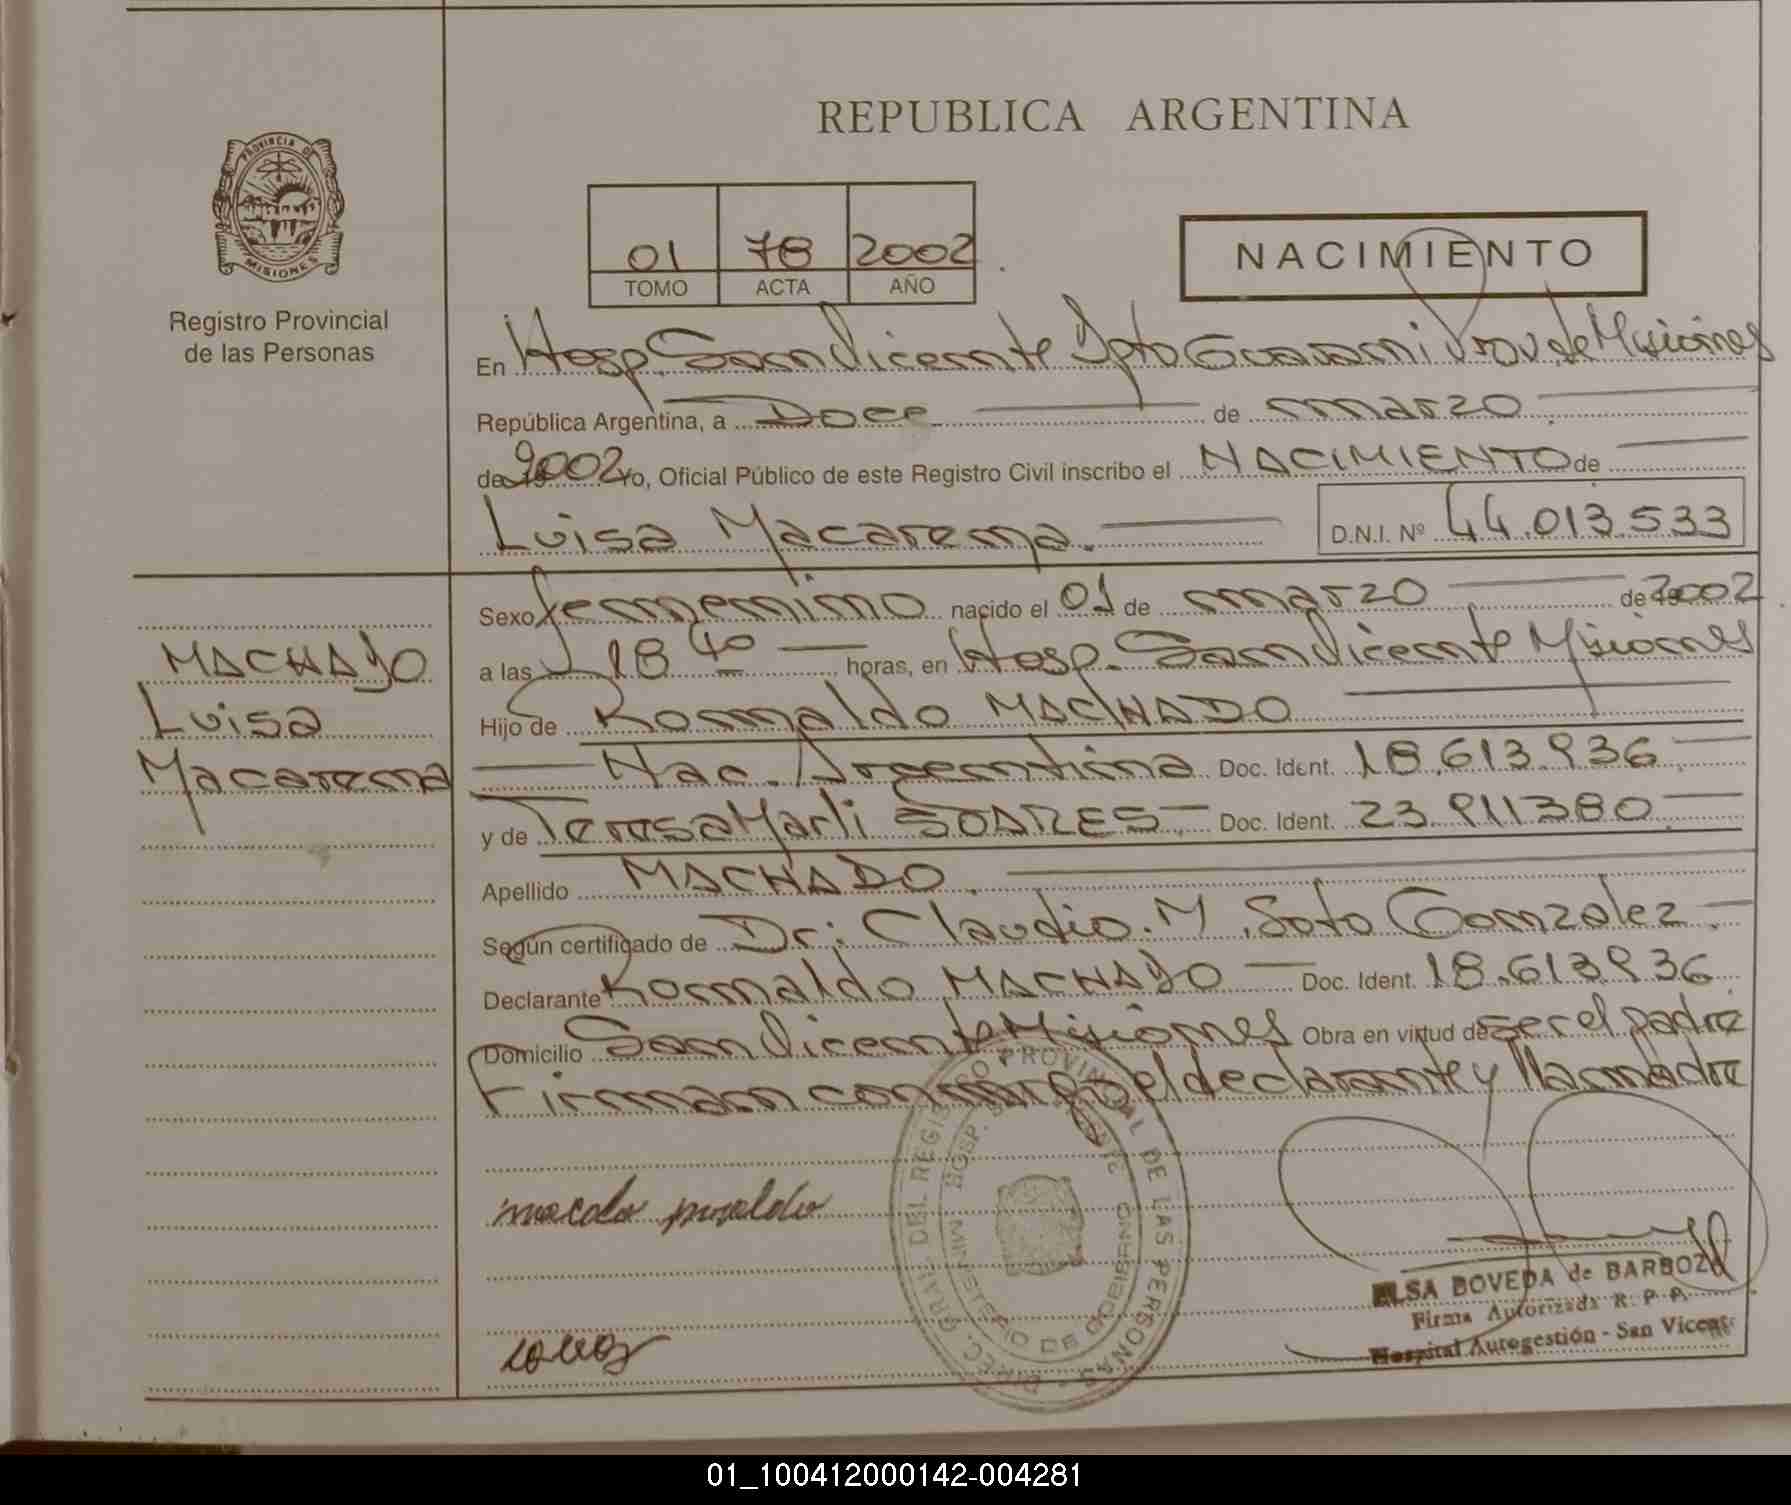 REPUBLICA ARGENTINA
PROVINCIA DE
MISIONES
Registro Provincial
de las Personas
01 78 2002
TOMO ACTA AÑO
NACIMIENTO
En Hosp. San Vicente Dpto Guarani Prov. de Misiones
República Argentina, a Doce de marzo
de 2002 Yo, Oficial Público de este Registro Civil inscribo el NACIMIENTO de
Luisa Macarena. D.N.I. Nº 44.013.533
Sexo femenino nacido el 01 de marzo de 2002
a las 18 40 horas, en Hosp. San Vicente Misiones
Hijo de Romaldo MACHADO
Nac. Argentina Doc. Ident. 18.613.936
y de Teresa Marli SOARES Doc. Ident. 23.911380
Apellido MACHADO
Según certificado de Dr: Claudio. M. Soto Gonzalez
Declarante Romaldo MACHADO Doc. Ident. 18.613.936
Domicilio San Vicente Misiones Obra en virtud de ser el padre
Firman conmigo el declarante y la madre
MACHADO
Luisa
Macarena
DIREC. GRAL. DEL REGISTRO PROVINCIAL DE LAS PERSONAS
MINISTERIO DE GOBIERNO
HOSP.
ELSA BOVEDA de BARBOZA
Firma Autorizada R. P. P.
Hospital Autogestión - San Vicente
01_100412000142-004281